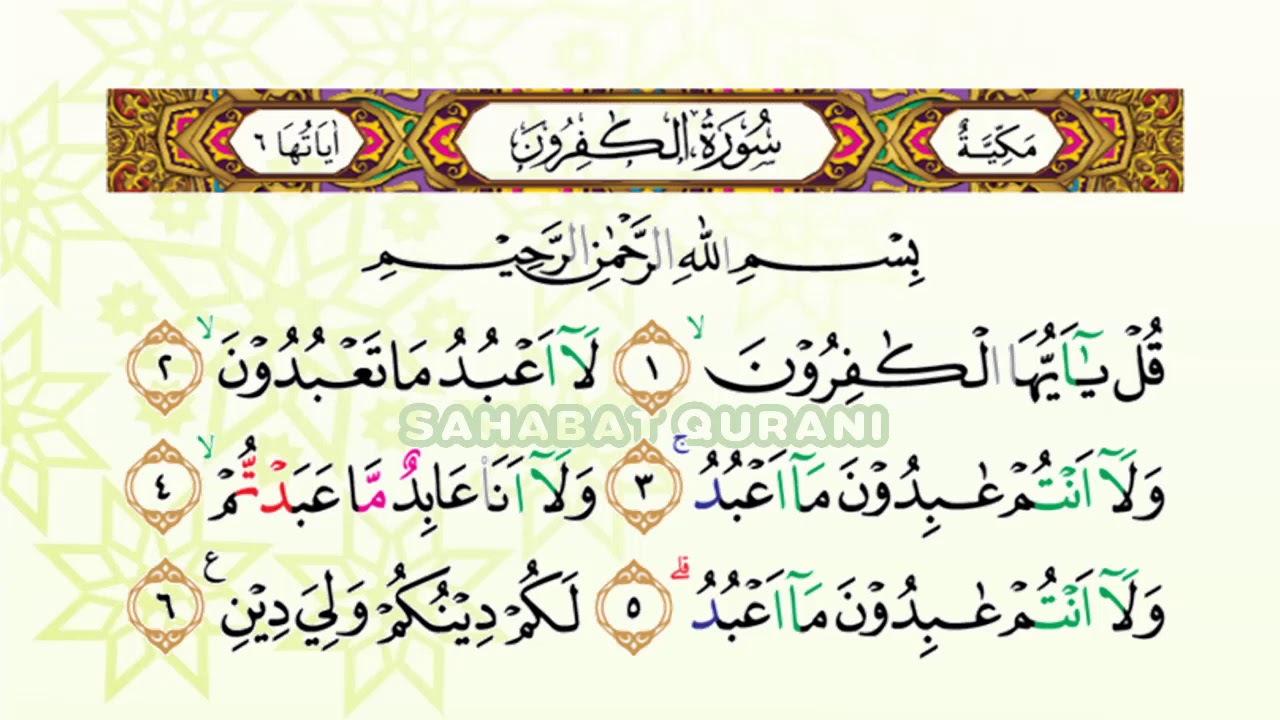 مَكِّيَّةٌ سُوْرَةُ الْكٰفِرُوْنَ اٰيَاتُهَا ٦
بِسْمِ اللّٰهِ الرَّحْمٰنِ الرَّحِيْمِ
قُلْ يٰٓاَيُّهَا الْكٰفِرُوْنَۙ ١ لَآ اَعْبُدُ مَا تَعْبُدُوْنَۙ ٢
SAHABAT QURANI
وَلَآ اَنْتُمْ عٰبِدُوْنَ مَآ اَعْبُدُۚ ٣ وَلَآ اَنَا۠ عَابِدٌ مَّا عَبَدْتُّمْۙ ٤
وَلَآ اَنْتُمْ عٰبِدُوْنَ مَآ اَعْبُدُۗ ٥ لَكُمْ دِيْنُكُمْ وَلِيَ دِيْنِ ࣖ ٦